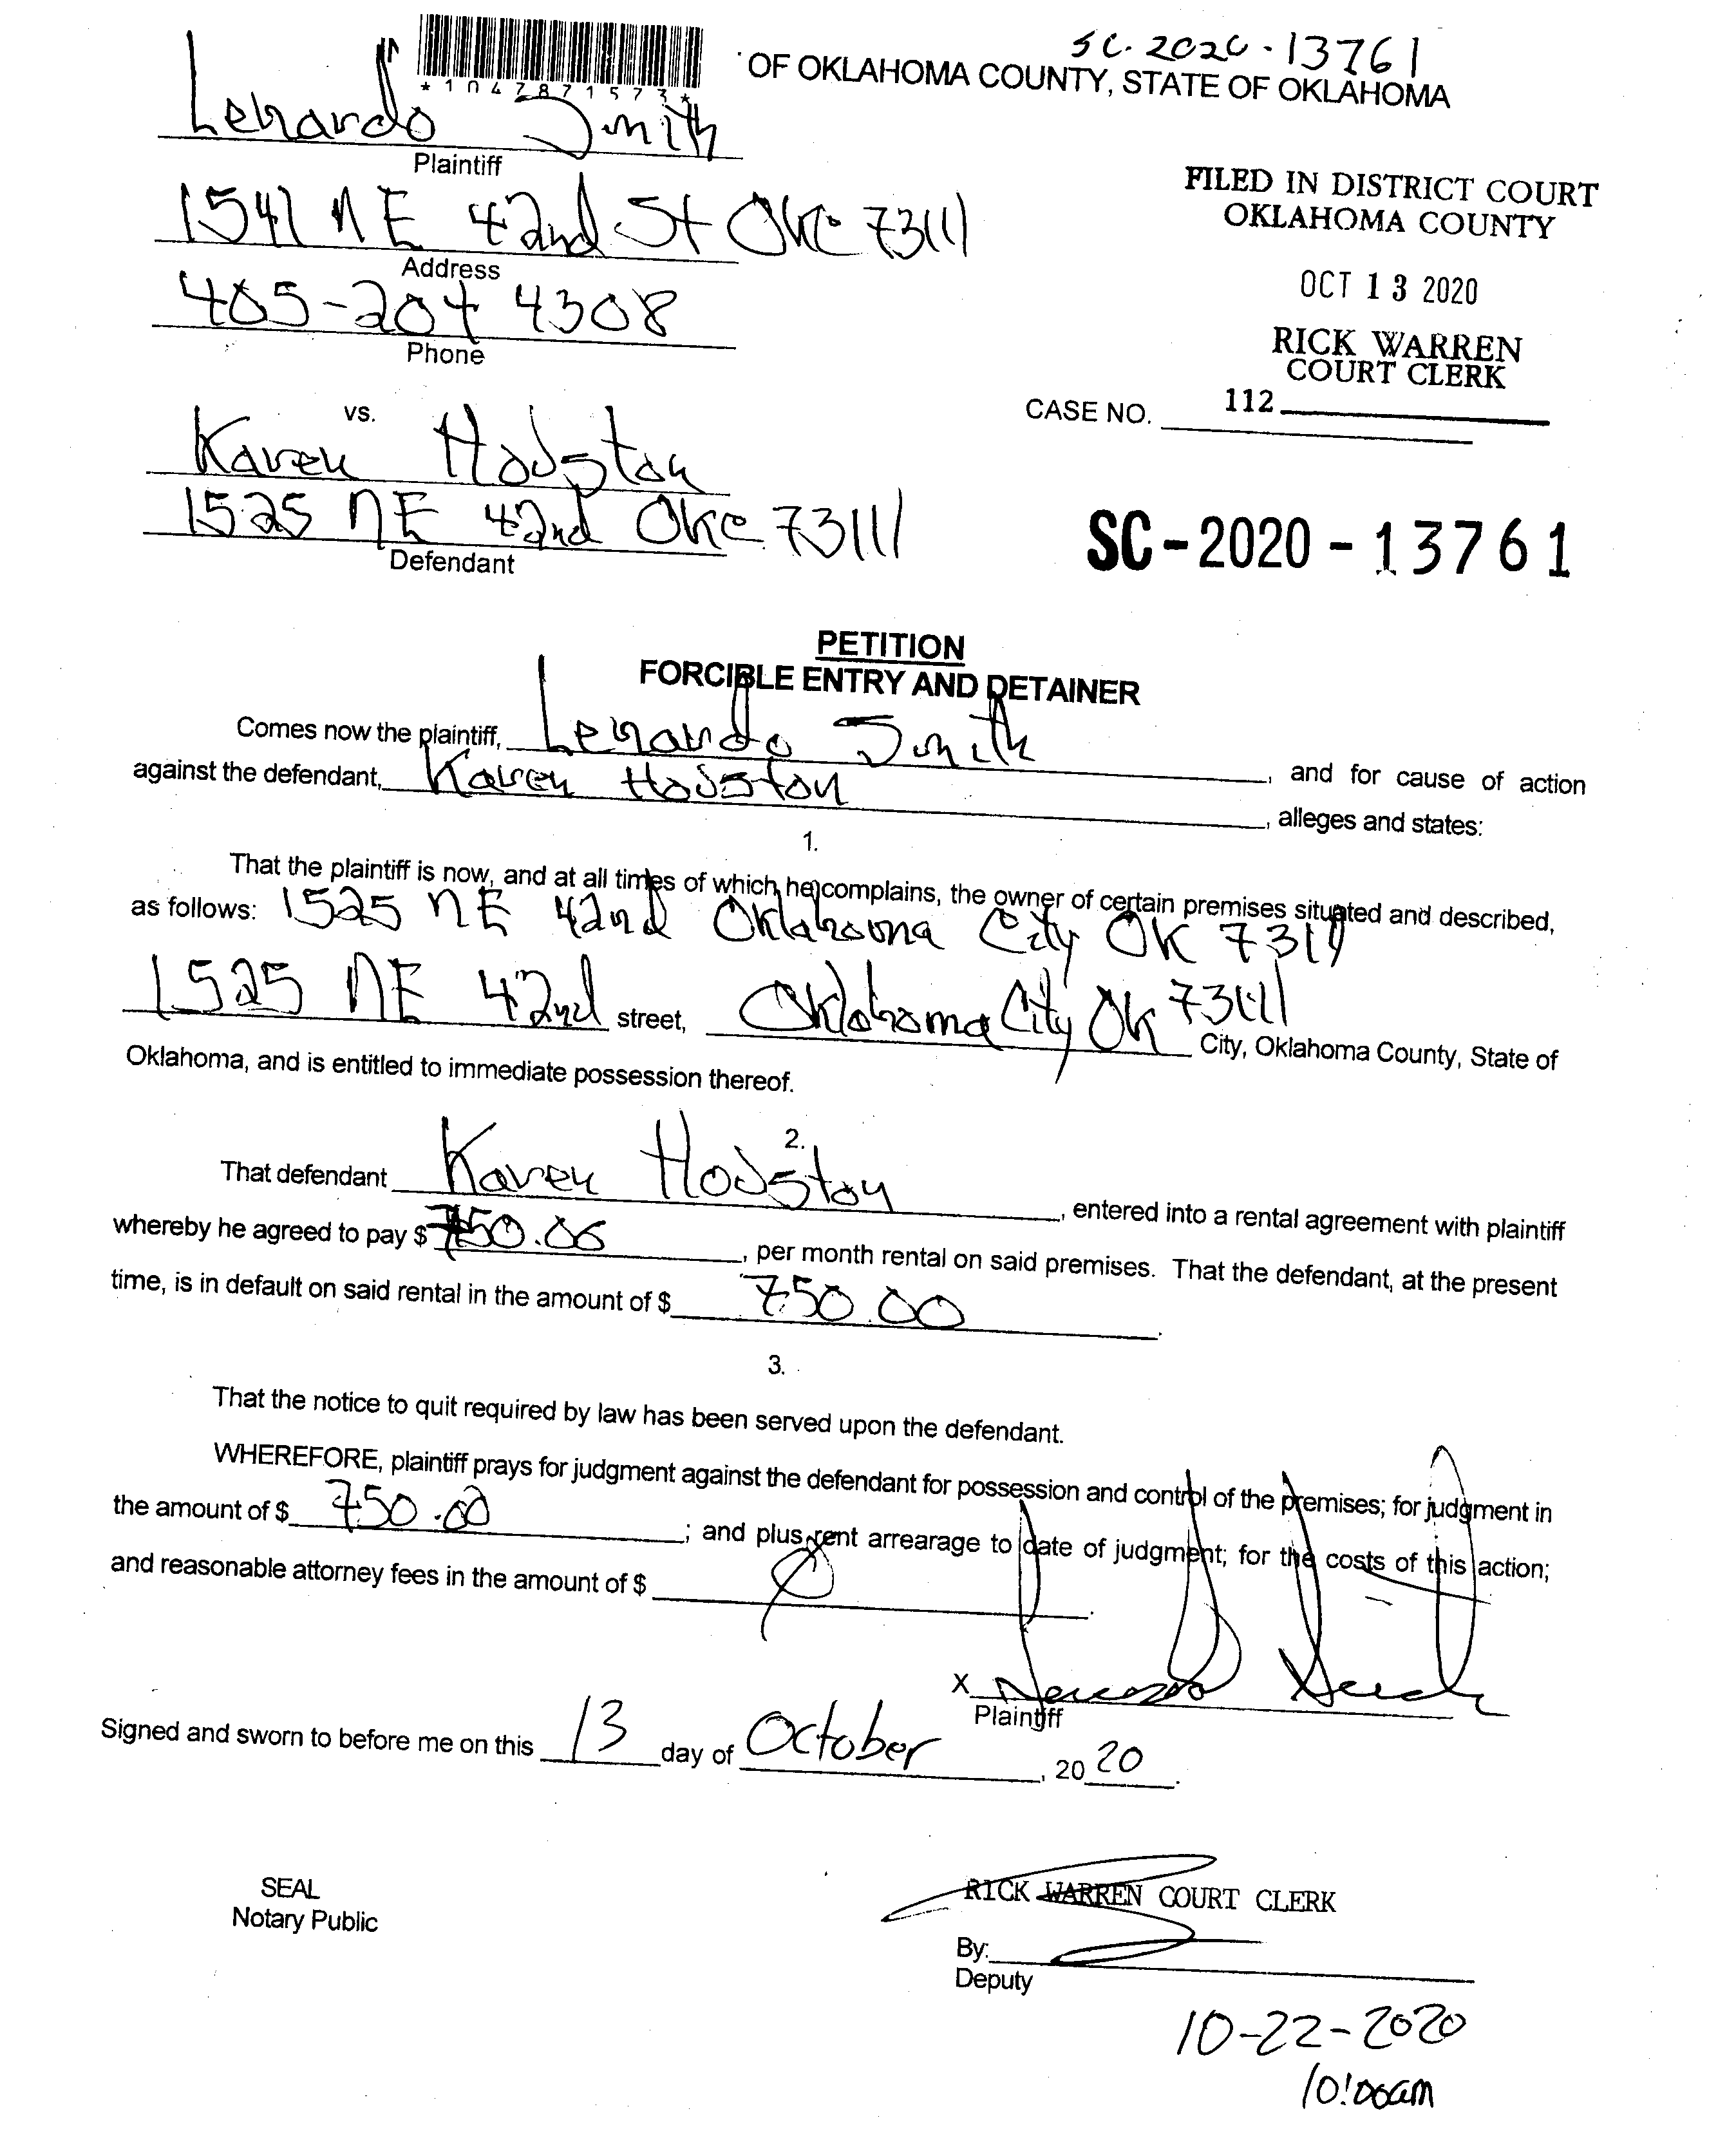 SC-2020-13761
*1047871573*
OF OKLAHOMA COUNTY, STATE OF OKLAHOMA
Lenardo Smith
Plaintiff
1541 NE 42nd St OKC 73111
Address
405-204 4308
Phone
FILED IN DISTRICT COURT
OKLAHOMA COUNTY
OCT 13 2020
RICK WARREN
COURT CLERK
CASE NO. 112
vs.
Karen Houston
1525 NE 42nd OKC 73111
Defendant
SC-2020-13761
PETITION
FORCIBLE ENTRY AND DETAINER
Comes now the plaintiff, Lenardo Smith
against the defendant, Karen Houston, and for cause of action
, alleges and states:
1.
That the plaintiff is now, and at all times of which he complains, the owner of certain premises situated and described,
as follows: 1525 NE 42nd Oklahoma City OK 73111
1525 NE 42nd street, Oklahoma City OK 73111 City, Oklahoma County, State of
Oklahoma, and is entitled to immediate possession thereof.
2.
That defendant Karen Houston, entered into a rental agreement with plaintiff
whereby he agreed to pay $ 750.00, per month rental on said premises. That the defendant, at the present
time, is in default on said rental in the amount of $ 750.00.
3.
That the notice to quit required by law has been served upon the defendant.
WHEREFORE, plaintiff prays for judgment against the defendant for possession and control of the premises; for judgment in
the amount of $ 750.00; and plus rent arrearage to date of judgment; for the costs of this action;
and reasonable attorney fees in the amount of $ Ø.
X Lenardo Smith
Plaintiff
Signed and sworn to before me on this 13 day of October, 2020.
SEAL
Notary Public
RICK WARREN COURT CLERK
By:
Deputy
10-22-2020
10:00am